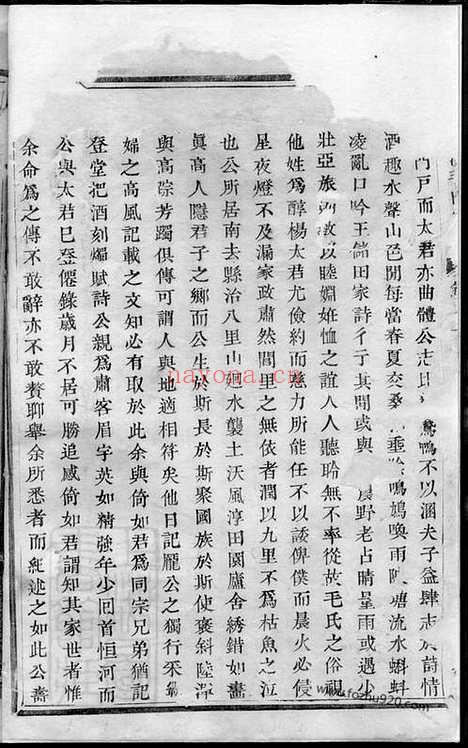 門戶而太君亦曲體公志日 鵞鴨不以溷夫子益肆志於詩情
酒趣水聲山色閒每當春夏交桑 垂 鳴鳩喚雨 塘流水蝌蚪
凌亂口吟王儲田家詩彳亍其間或與 農野老占晴量雨或遇少
壯亞旅 以睦婣姙恤之誼人人聽聆無不率從故毛氏之俗視
他姓爲醇楊太君尤儉約而慈力所能任不以諉俾僕而晨火必侵
星夜燈不及漏家政肅然閭里之無依者潤以九里不爲枯魚之泣
也公所居南去縣治八里山迴水襲土沃風淳田園廬舍綉錯如畫
眞高人隱君子之鄉而公生於斯長於斯聚國族於斯使褒斜陸渾
與高踪芳躅俱傳可謂人與地適相符矣他日記龐公之獨行采
婦之高風記載之文知必有取於此余與倚如君爲同宗兄弟猶記
登堂把酒刻燭賦詩公親爲肅客眉宇英如精強年少回首恒河而
公與太君已登僊錄歲月不居可勝追感倚如君謂知其家世者惟
余命爲之傳不敢辭亦不敢贅聊舉余所悉者而紀述之如此公壽
nayona.cn
www.fozhu920.com